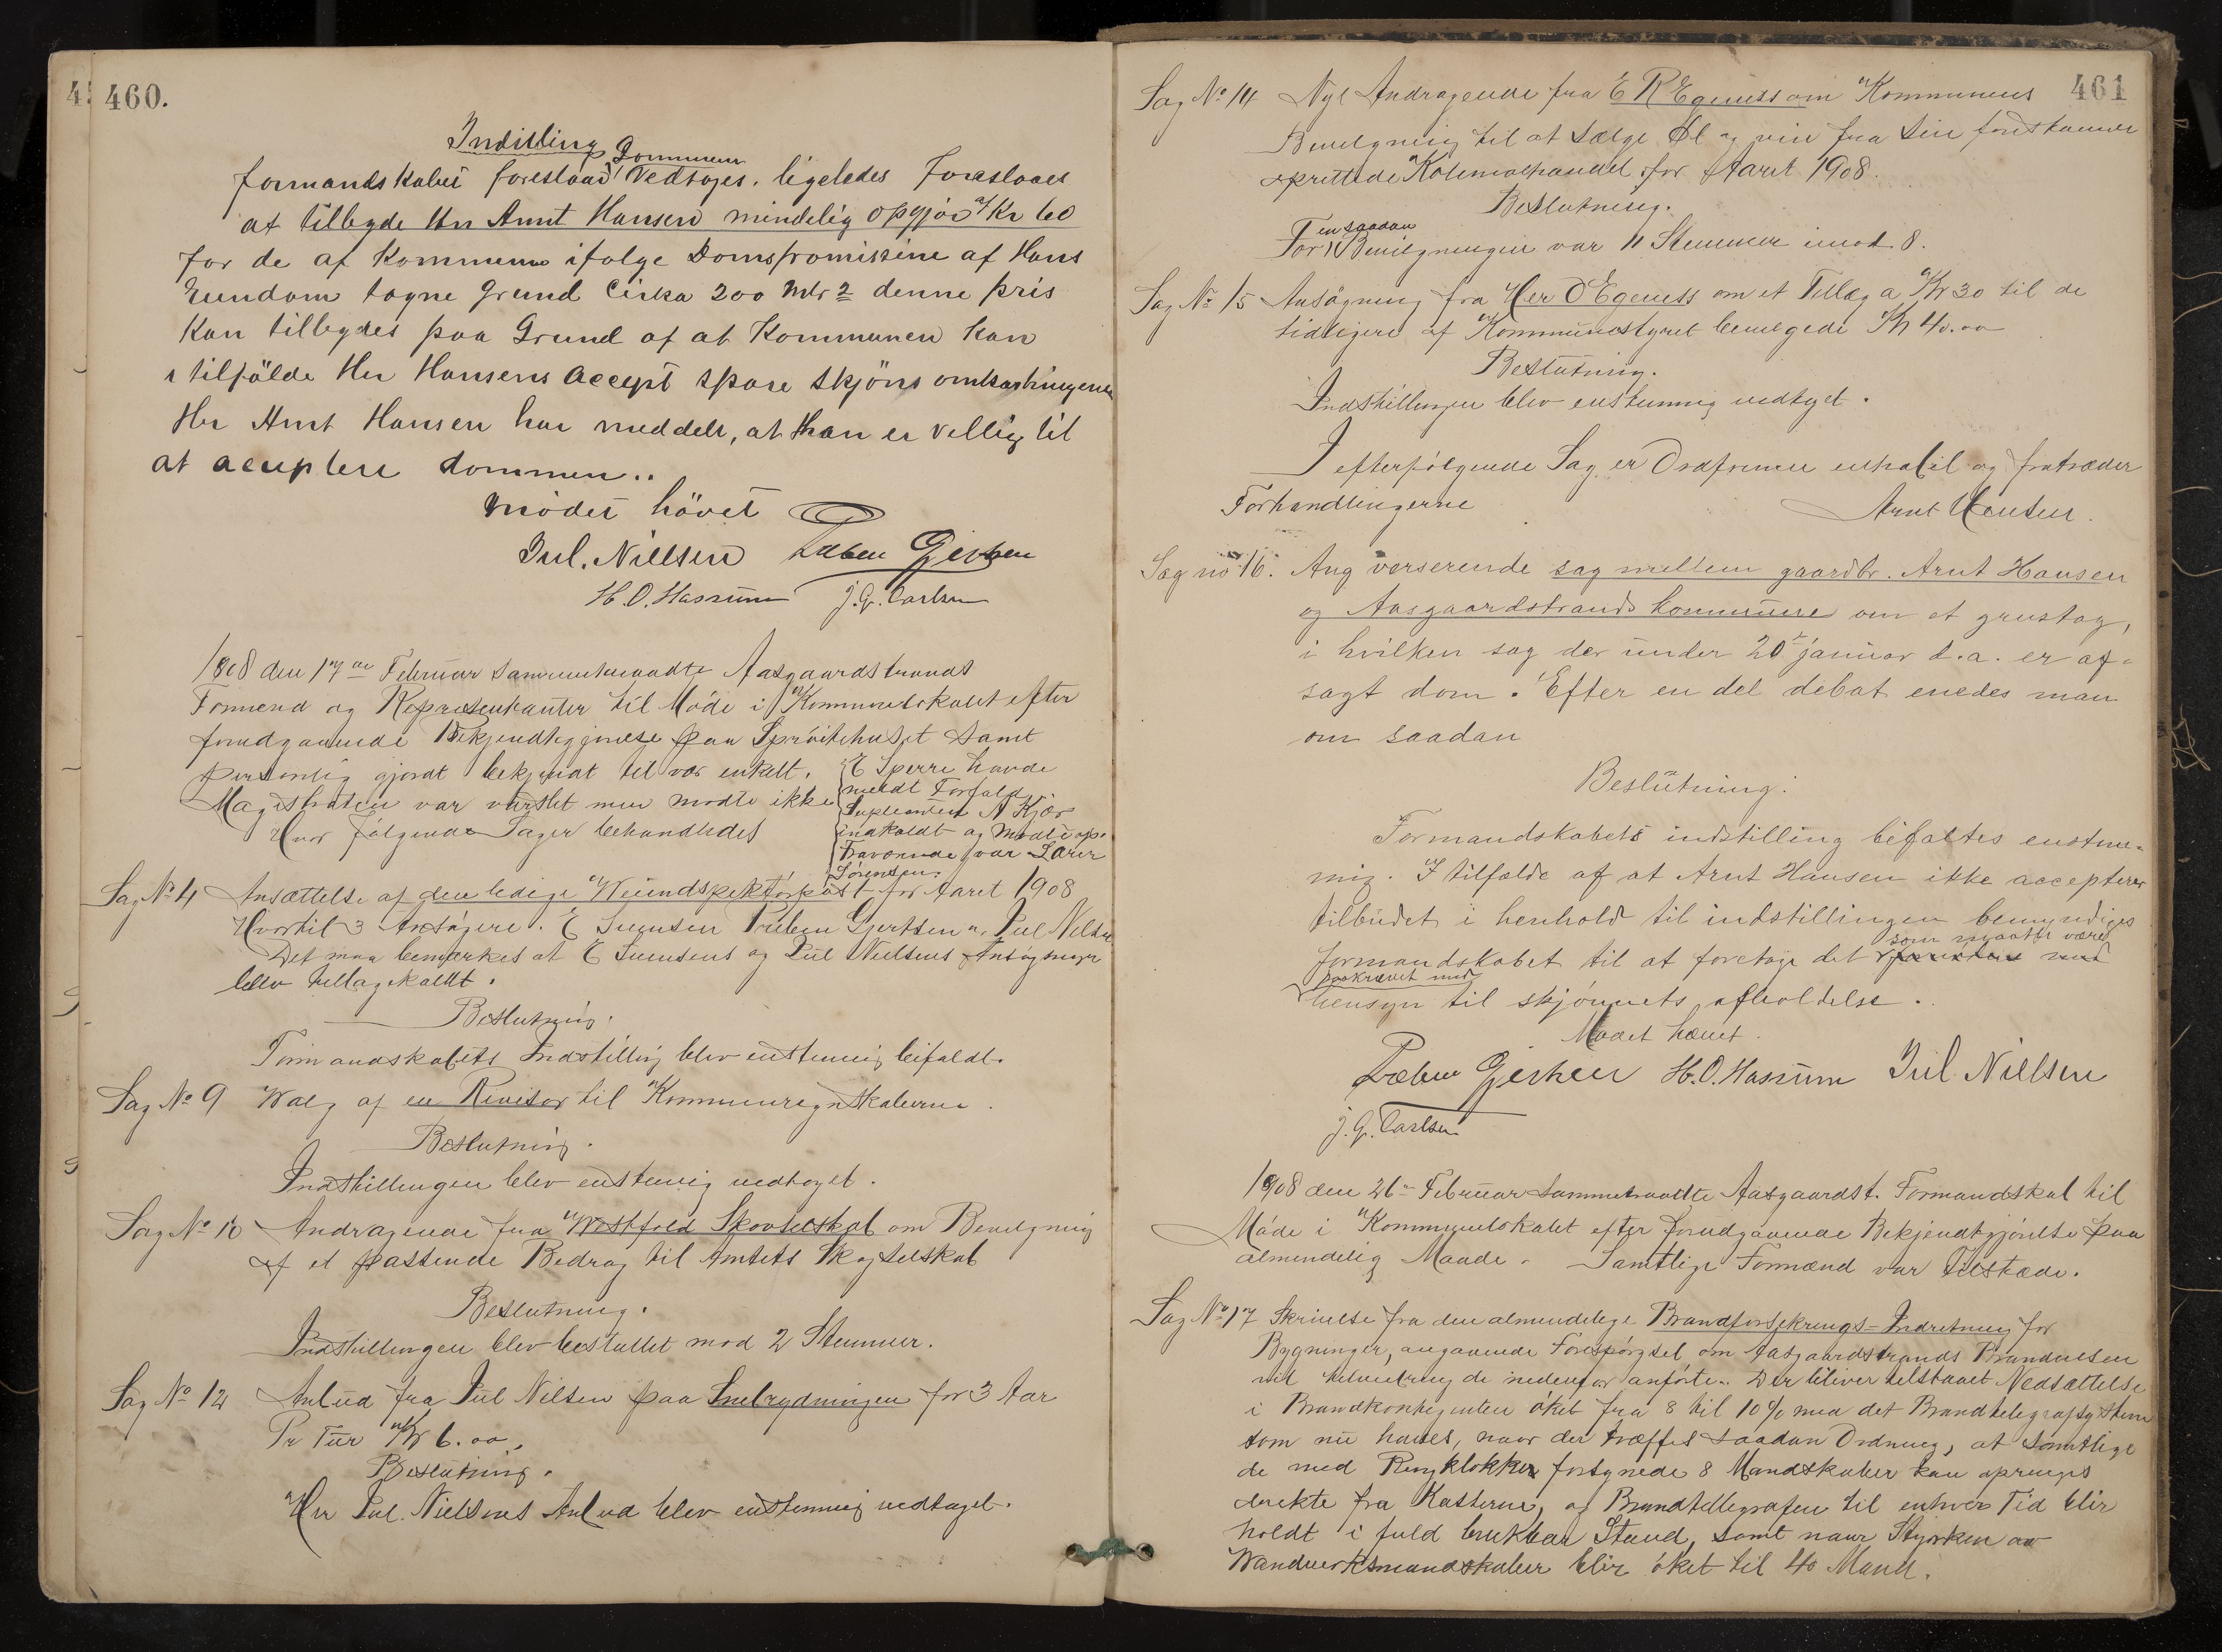 460.
Indstilling
formandskabet foreslaar Dommen Vedtages. ligeledes Foreslaaes
at tilbyde Hr Arnt Hansen mindelig opgjør af Kr 60
for de af Kommunen ifølge Domspromissine af Hans
Eiendom tagne Grund Cirka 200 Mtr 2 denne pris
Kan tilbydes paa Grund af at Kommunen kan
i tilfälde Her Hansens Accept spare Skjöns omkostningene
Her Arnt Hansen har meddelt, at Han er Villig til
at aceptere dommen..
Mödet hävet
Jul. Nielsen Preben Gjertsen
H.O. Hassum J.G. Carlsen
1908 den 17de Februar sammentraadte Aasgaardstrands
Formænd og Repræsentanter til Møde i Kommunelokalet efter
forudgaaende Bekjendtgjørelse paa Sprøitehuset samt
personlig gjordt bekjendt til vær enkelt.
Magistraten var varslet men mødte ikke
Hvor følgende Sager behandledes
E Sperre havde
meldt Forfald
Supleanten A Kjær
indkaldt og Mødte op.
Fraværende var Lærer
Sørensen.
Sag No 4 Ansættelse af den ledige Weiindspektørpost for Aaret 1908
Hvortil 3 Ansøgere. E Svensen Preben Gjertsen og Jul Nielsen
Det maa bemærkes at E Svensens og Jul Nielsens Ansøgninger
blev tilbagekaldt.
Beslutning.
Formandskabets Indstilling blev enstemmig bifaldt.
Sag No 9 Walg af en Revisor til Kommuneregnskaberne.
Beslutning.
Indstillingen blev enstemig vedtaget.
Sag No 10 Andragende fra Westfold Skovselskab om Bevilgning
af et passende Bedrag til Amtets Skogselskab
Beslutning.
Indstillingen blev besluttet mod 2 Stemmer.
Sag No 12 Anbud fra Jul Nilsen paa Snebrydningen for 3 Aar
Pr Tur Kr 6.00,
Beslutning.
Her Jul. Nielsens Anbud blev enstemmig vedtaget.
461
Sag No 14 Nyt Andragende fra E R Egeness om Kommunens
Bevilgning til at Sælge Øl og vin fra Sin forstkommer
oprettede Kolonialhandel for Aaret 1908.
Beslutning.
For en saadan Bevilgningen var 11 Stemmer imod 8.
Sag No 15 Ansøgning fra Her O Egeness om et Tillæg a Kr 30 til de
tidligere af Kommunestyret bevilgede Kr 40.00
Beslutning.
Indstillingen blev enstemmig vedtaget.
I efterfølgende Sag er Ordføreren inhabil og fratræder
Forhandlingerne
Arnt Hansen.
Sag no 16. Ang verserende sag mellem gaardbr. Arnt Hansen
og Aasgaardstrands kommune om et grustag,
i hvilken sag der under 20de januar d.a. er af-
sagt dom. Efter en del debat enedes man
om saadan
Beslutning:
Formandskabets indstilling bifaltes enstem-
mig. I tilfælde af at Arnt Hansen ikke accepterer
tilbudet i henhold til indstillingen bemyndiges
formandskabet til at foretage det som maatte være
paakrævet med
hensyn til skjønnets afholdelse.
Mødet hævet.
Preben Gjertsen H.O. Hassum Jul Nielsen
J.G. Carlsen
1908 den 26de Februar Sammentraadte Aasgaardst. Formandskab til
Møde i Kommunelokalet efter forudgaaende Bekjendtgjørelse paa
almindelig Maade. Samtlige Formænd var Tilstæde.
Sag No 17 Skrivelse fra den almindelige Brandforsikrings-Indretning for
Bygninger, angaaende Forespørgsel om Aasgaardstrands Brandvæsen
vil tilveiebring de nedenfor anførte. Der bliver tilstaaet Nedsættelse
i Brandkontigenten öket fra 8 til 10% med det Brandtelegrafsystem
som nu haves, naar der træffes saadan Ordning, at samtlige
de med Ringklokker forsynede 8 Mandskaber kan opringes
direkte fra Kasterne, og Brandtelegrafen til enhver Tid blir
holdt i fuld brukbar Stand, samt naar Styrken av
Wandverksmandskaber blir öket til 40 Mand.